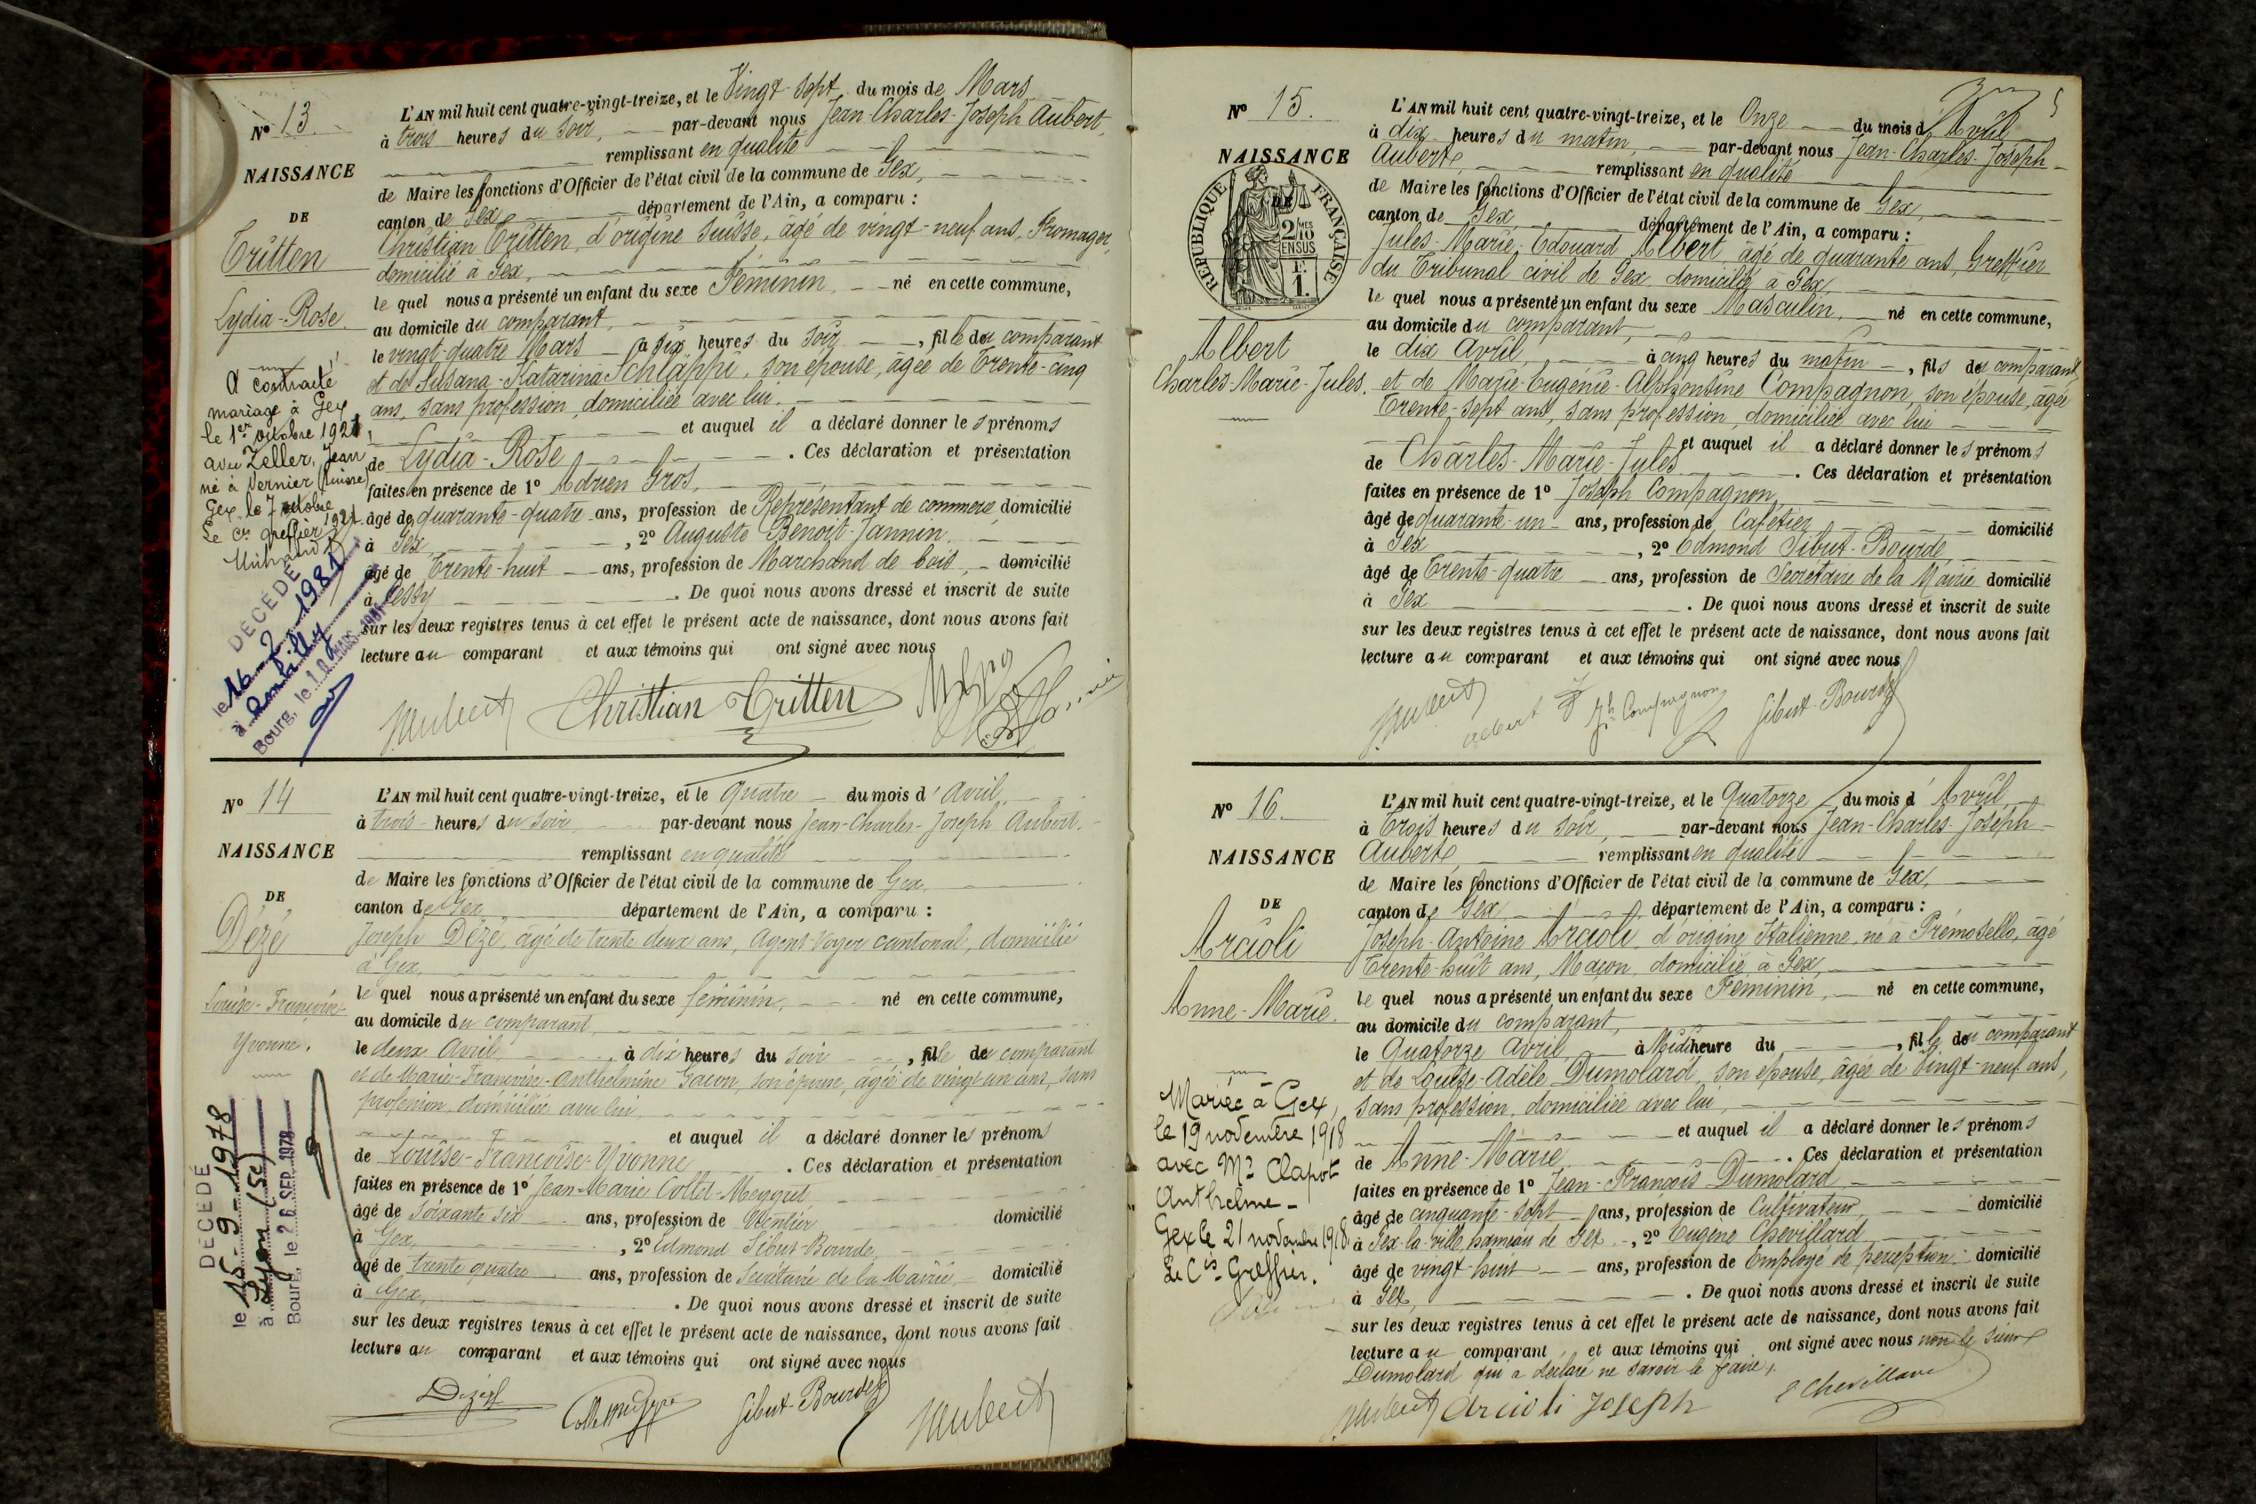 Nº 13.
NAISSANCE
DE
Tritten
Lydia-Rose.
A contracté
mariage à Gex
le 1er octobre 1921
avec Zeller, Jean
né à Vernier (Suisse)
Gex, le 7 octobre 1921
Le cis greffier
DÉCÉDÉ
le 16-2-1981
à Ambilly
Bourg, le
L'AN mil huit cent quatre-vingt-treize, et le Vingt-sept du mois de Mars
à trois heures du soir, par-devant nous Jean-Charles-Joseph Aubert,
remplissant en qualité
de Maire les fonctions d'Officier de l'état civil de la commune de Gex,
canton de Gex département de l'Ain, a comparu :
Christian Tritten, d'origine suisse, âgé de vingt-neuf ans, Fromager,
domicilié à Gex,
le quel nous a présenté un enfant du sexe Féminin, né en cette commune,
au domicile du comparant,
le vingt-quatre Mars à six heures du soir, fille du comparant
et de Susana-Katarina Schläppi, son épouse, âgée de Trente-cinq
ans, sans profession, domiciliée avec lui.
et auquel il a déclaré donner les prénoms
de Lydia-Rose. Ces déclaration et présentation
faites en présence de 1º Adrien Gros,
âgé de quarante-quatre ans, profession de Représentant de commerce, domicilié
à Gex, 2º Auguste Benoit-Jannin,
âgé de Trente-huit ans, profession de Marchand de bois, domicilié
à Cessy. De quoi nous avons dressé et inscrit de suite
sur les deux registres tenus à cet effet le présent acte de naissance, dont nous avons fait
lecture au comparant et aux témoins qui ont signé avec nous
JAubert Christian Tritten
Nº 14
NAISSANCE
DE
Dézé
Louise-Françoise-
Yvonne.
DÉCÉDÉ
le 15-9-1978
à Lyon (5e)
Bourg, le 26 SEP. 1978
L'AN mil huit cent quatre-vingt-treize, et le quatre du mois d'Avril
à trois heures du soir par-devant nous Jean-Charles-Joseph Aubert.
remplissant en qualité
de Maire les fonctions d'Officier de l'état civil de la commune de Gex,
canton de Gex département de l'Ain, a comparu :
Joseph Dézé, âgé de trente deux ans, Agent Voyer cantonal, domicilié
à Gex,
le quel nous a présenté un enfant du sexe féminin, né en cette commune,
au domicile du comparant,
le deux Avril, à dix heures du soir, fille du comparant
et de Marie-Françoise-Anthelmine Gacon, son épouse, âgée de vingt un ans, sans
profession, domiciliée avec lui
et auquel il a déclaré donner les prénoms
de Louise-Françoise-Yvonne. Ces déclaration et présentation
faites en présence de 1º Jean-Marie Collet-Meygret
âgé de soixante six ans, profession de Rentier domicilié
à Gex, 2º Edmond Sibut-Bourde,
âgé de trente quatre ans, profession de Secrétaire de la Mairie, domicilié
à Gex. De quoi nous avons dressé et inscrit de suite
sur les deux registres tenus à cet effet le présent acte de naissance, dont nous avons fait
lecture au comparant et aux témoins qui ont signé avec nous
Dézé Sibut-Bourde JAubert
5
Nº 15.
NAISSANCE
DE
RÉPUBLIQUE FRANÇAISE
2 MES
10
EN SUS
1 F.
Albert
Charles-Marie-Jules.
L'AN mil huit cent quatre-vingt-treize, et le Onze du mois d'Avril
à dix heures du matin, par-devant nous Jean-Charles-Joseph
Aubert, remplissant en qualité
de Maire les fonctions d'Officier de l'état civil de la commune de Gex,
canton de Gex département de l'Ain, a comparu :
Jules-Marie-Edouard Albert, âgé de quarante ans, Greffier
du Tribunal civil de Gex, domicilié à Gex,
le quel nous a présenté un enfant du sexe Masculin, né en cette commune,
au domicile du comparant,
le dix Avril, à cinq heures du matin, fils du comparant
et de Marie-Eugénie-Alphonsine Compagnon, son épouse, âgée
Trente-sept ans, sans profession, domiciliée avec lui
et auquel il a déclaré donner les prénoms
de Charles-Marie-Jules. Ces déclaration et présentation
faites en présence de 1º Joseph Compagnon,
âgé de quarante-un ans, profession de Cafetier domicilié
à Gex, 2º Edmond Sibut-Bourde
âgé de Trente-quatre ans, profession de Secrétaire de la Mairie domicilié
à Gex. De quoi nous avons dressé et inscrit de suite
sur les deux registres tenus à cet effet le présent acte de naissance, dont nous avons fait
lecture au comparant et aux témoins qui ont signé avec nous
JAubert Albert Jh Compagnon Sibut-Bourde
Nº 16.
NAISSANCE
DE
Arcioli
Anne-Marie.
Mariée à Gex,
le 19 novembre 1918
avec Mr Clapot
Anthelme
Gex le 21 novembre 1918
Le Cis Greffier.
L'AN mil huit cent quatre-vingt-treize, et le Quatorze du mois d'Avril
à Trois heures du soir, par-devant nous Jean-Charles-Joseph
Aubert, remplissant en qualité
de Maire les fonctions d'Officier de l'état civil de la commune de Gex,
canton de Gex, département de l'Ain, a comparu :
Joseph-Antoine Arcioli, d'origine Italienne, né à Prémosello, âgé
Trente-huit ans, Maçon, domicilié à Gex,
le quel nous a présenté un enfant du sexe Féminin, né en cette commune,
au domicile du comparant,
le Quatorze Avril, à Midi heure du, fille du comparant
et de Louise-Adèle Dumolard, son épouse, âgée de Vingt-neuf ans,
sans profession, domiciliée avec lui,
et auquel il a déclaré donner les prénoms
de Anne-Marie. Ces déclaration et présentation
faites en présence de 1º Jean-François Dumolard
âgé de cinquante-sept ans, profession de Cultivateur domicilié
à Gex-la-ville hameau de Gex, 2º Eugène Chevillard
âgé de vingt-huit ans, profession de Employé de perception domicilié
à Gex,. De quoi nous avons dressé et inscrit de suite
sur les deux registres tenus à cet effet le présent acte de naissance, dont nous avons fait
lecture au comparant et aux témoins qui ont signé avec nous non le sieur
Dumolard qui a déclaré ne savoir le faire.
JAubert Arcioli Joseph E Chevillard